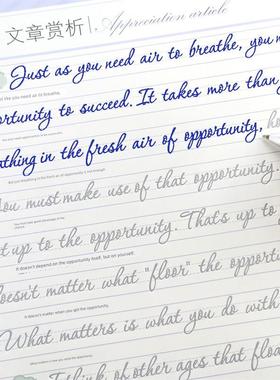 文章赏析 Appreciation article
Just as you need air to breathe, you
Just like you need air to breathe,
opportunity to succeed. It takes more than
breathing in the fresh air of opportunity,
But breathing in the fresh air of opportunity is not enough.
You must make use of that opportunity.
up to the opportunity. That's up to
It doesn't depend on the opportunity itself, but on yourself.
doesn't matter what "floor" the opportunity
It doesn't matter when you got the opportunity.
What matters is what you do with
Think of other ages that